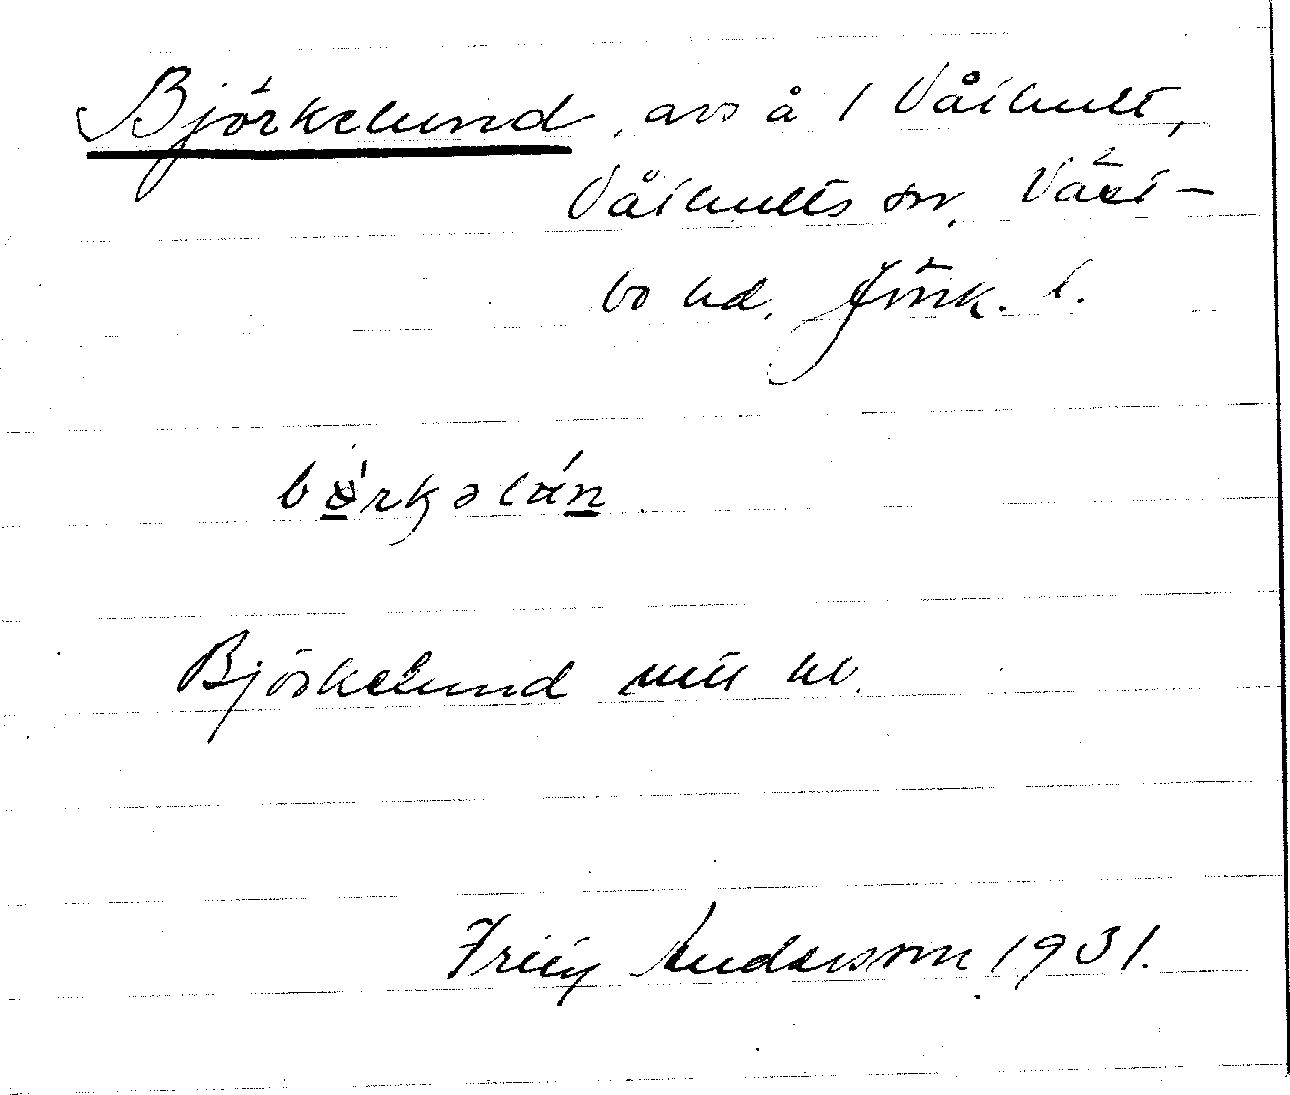 Björkelund, avs å 1 Våthult,
Våthults sn, Väst-
bo hd, Jönk. l.
bö̀rkəlán
Björkelund mtl hl.
Frity Andersson 1931.